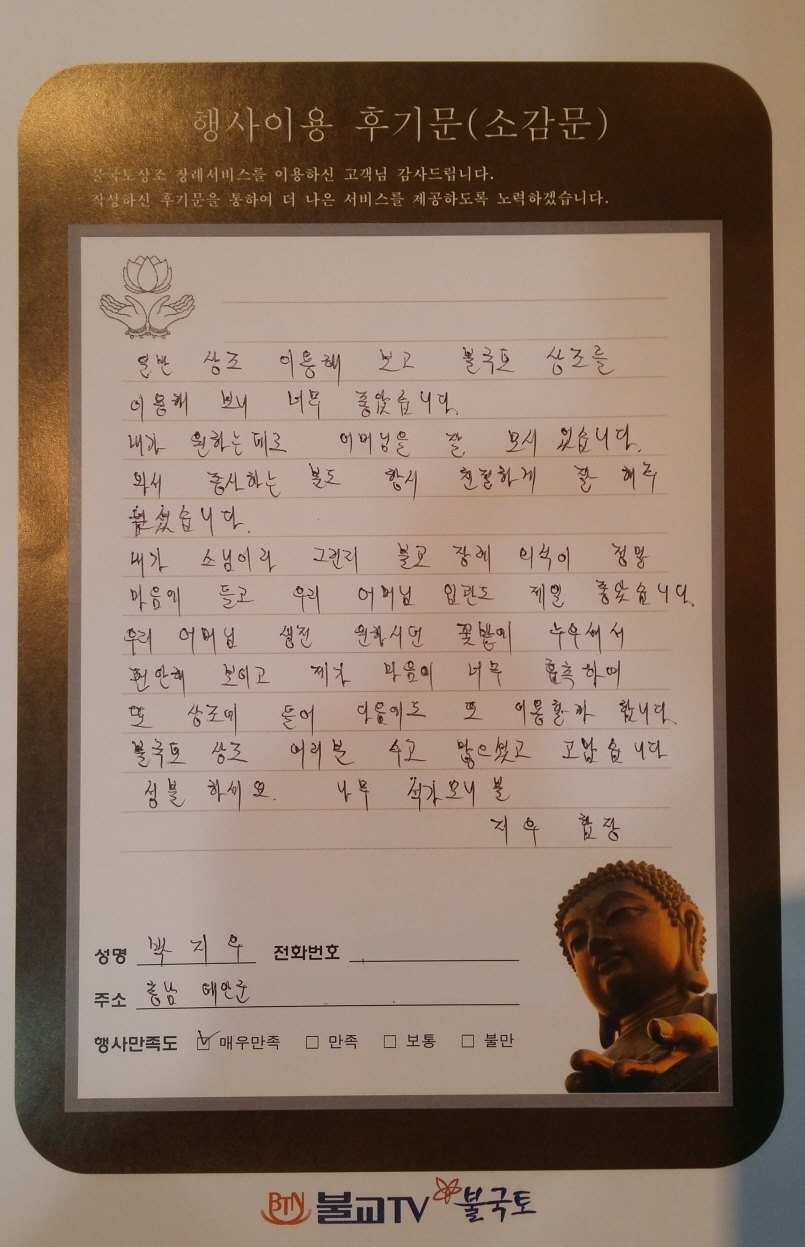 행사이용 후기문(소감문)
불국토상조 장례서비스를 이용하신 고객님 감사드립니다.
작성하신 후기문을 통하여 더 나은 서비스를 제공하도록 노력하겠습니다.
일반 상조 이용해 보고 불국토 상조를
이용해 보니 너무 좋았습니다.
내가 원하는데로 어머님을 잘 모시 있습니다.
와서 봉사하는 분도 항시 친절하게 잘 해주
셨습니다.
내가 스님이라 그런지 불교 장례 의식이 정말
마음에 들고 우리 어머님 입관도 제일 좋았습니다.
우리 어머님 생전 원하시던 꽃밭에 누우셔서
편안해 보이고 제가 마음에 너무 흡족하여
또 상조에 들어 다음에도 또 이용할까 합니다.
불국토 상조 여러분 수고 많으셨고 고맙습니다
성불 하세요. 나무 석가모니 불
지우 합장
성명 박지우 전화번호
주소 충남 태안군
행사만족도 ☑ 매우만족 □ 만족 □ 보통 □ 불만
BTN 불교TV 불국토